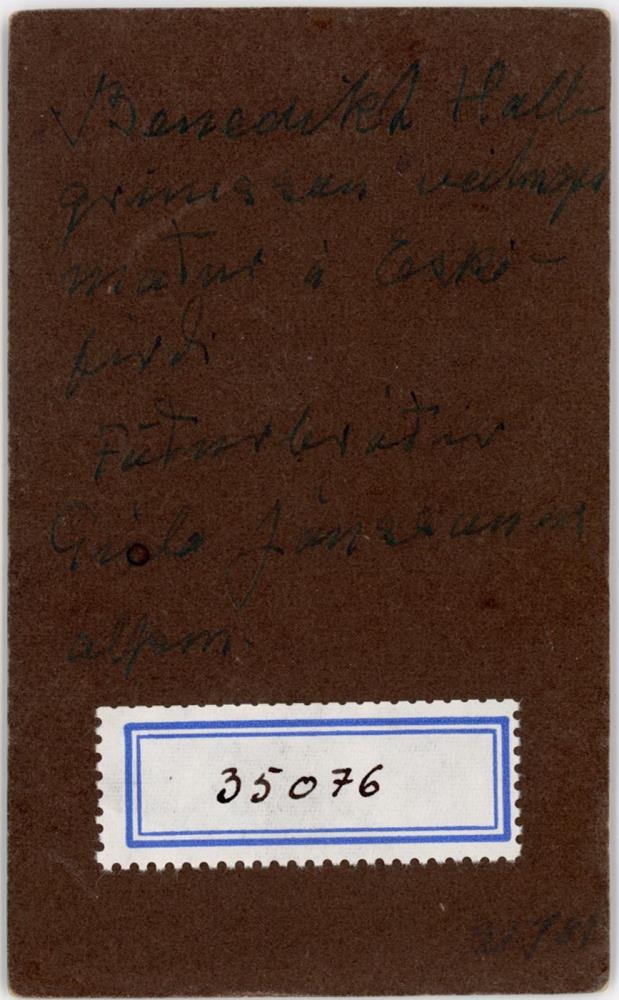 Benedikt Hall-
grímsson veitinga
maður á Eski-
firði
Föðurbróðir
Gísla Jónssonar
alþm.
35076